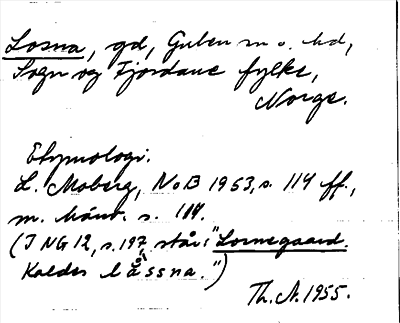 Losna, gd, Gulen sn o. hd,
Sogn og Fjordane fylke,
Norge.
Etymologi.
L. Moberg, NoB 1953, s. 114 ff.,
m. hänv. s. 114.
(I NG 12, s. 197, står: "Lornegaard.
Kaldes låssna.")
Th. A. 1955.